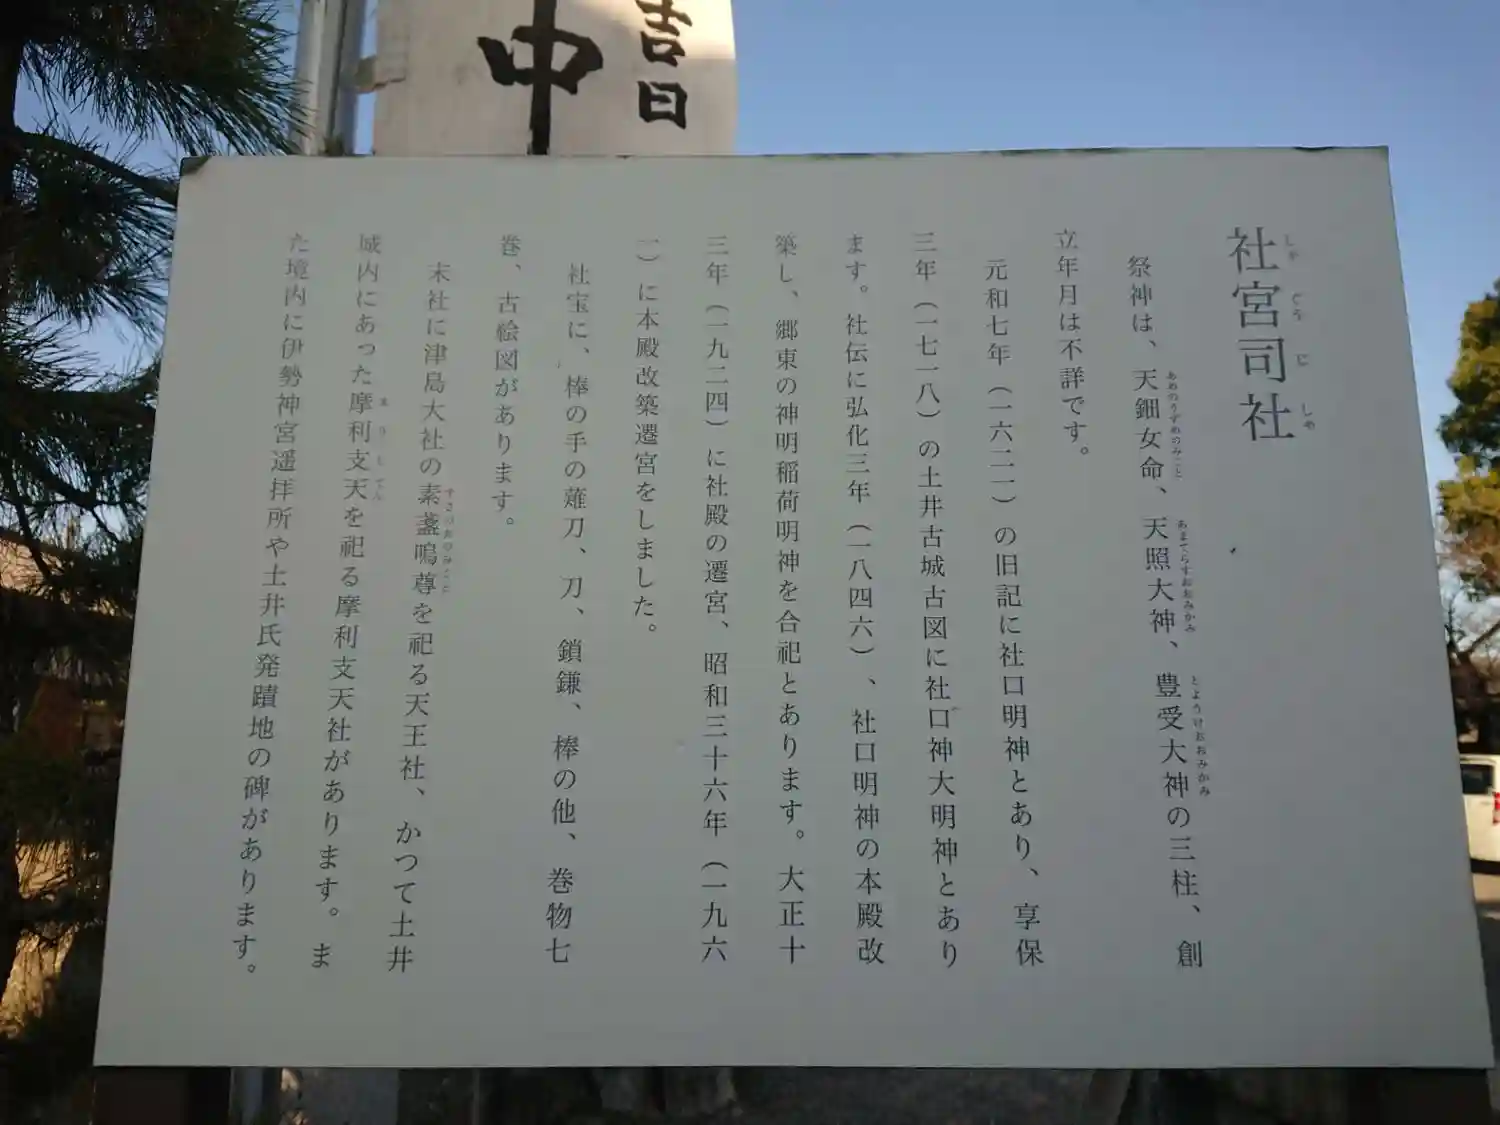 吉日
中
社宮司社
しゃ ぐう じ しゃ
祭神は、天鈿女命、天照大神、豊受大神の三柱、創
あめのうずめのみこと あまてらすおおみかみ とようけおおみかみ
立年月は不詳です。
元和七年（一六二一）の旧記に社口明神とあり、享保
三年（一七一八）の土井古城古図に社口神大明神とあり
ます。社伝に弘化三年（一八四六）、社口明神の本殿改
築し、郷東の神明稲荷明神を合祀とあります。大正十
三年（一九二四）に社殿の遷宮、昭和三十六年（一九六
一）に本殿改築遷宮をしました。
社宝に、棒の手の薙刀、刀、鎖鎌、棒の他、巻物七
巻、古絵図があります。
末社に津島大社の素盞嗚尊を祀る天王社、かつて土井
すさのおのみこと
城内にあった摩利支天を祀る摩利支天社があります。ま
ま り し てん
た境内に伊勢神宮遥拝所や土井氏発蹟地の碑があります。